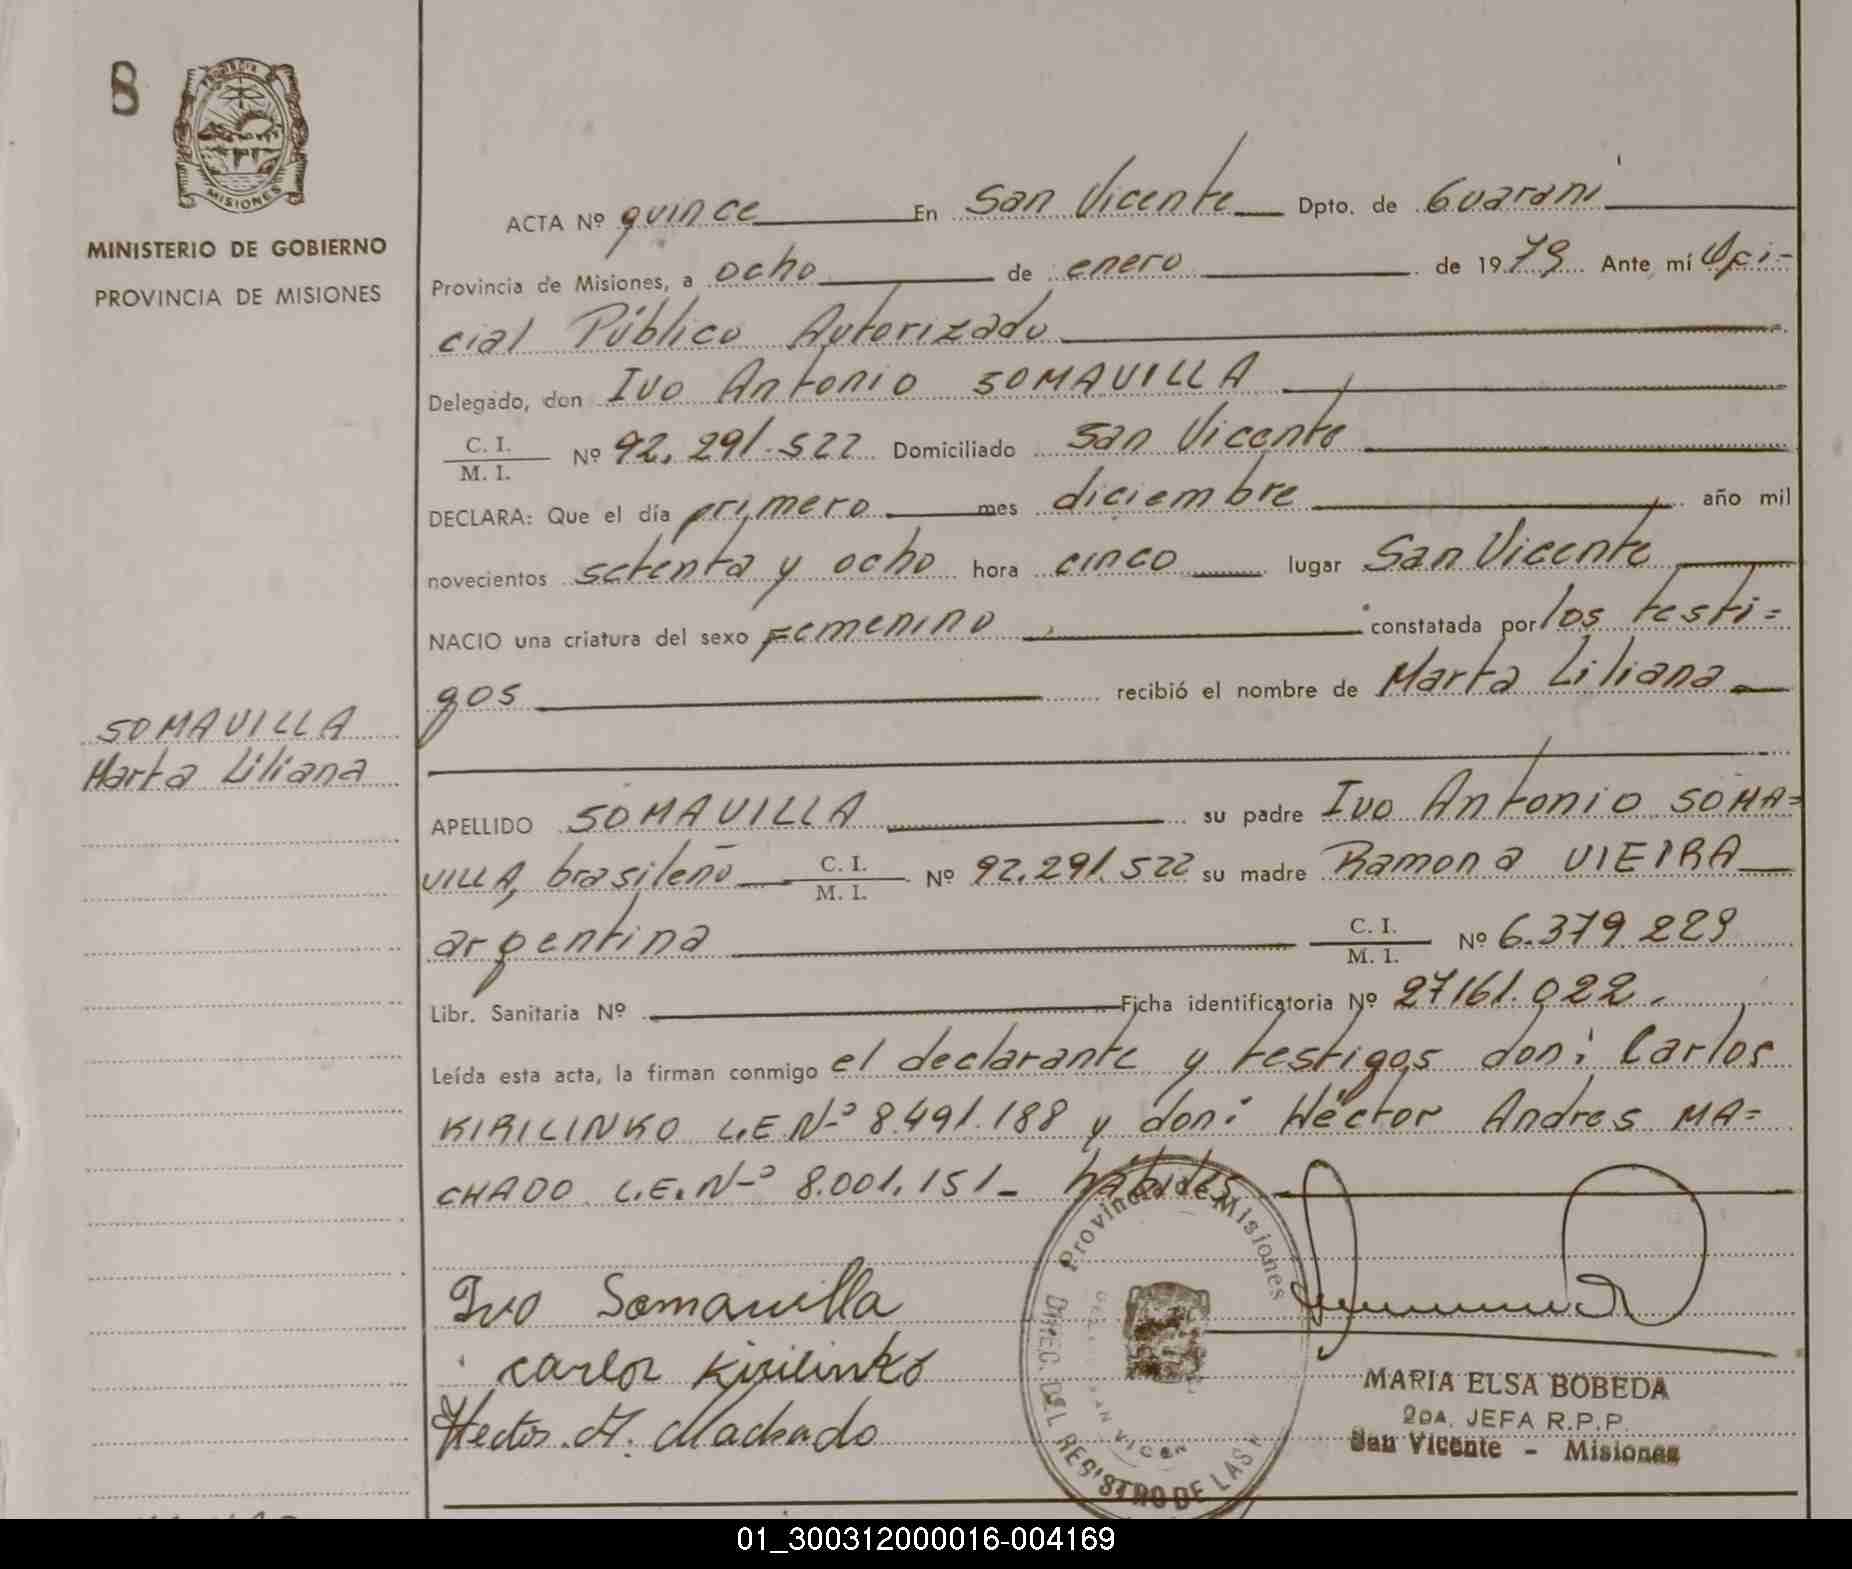 8
PROVINCIA
MISIONES
MINISTERIO DE GOBIERNO
PROVINCIA DE MISIONES
ACTA Nº quince En San Vicente Dpto. de Guaraní
Provincia de Misiones, a ocho de enero de 1979 Ante mí Ofi-
cial Público Autorizado
Delegado, don Ivo Antonio SOMAVILLA
C. I.
M. I. Nº 92.291.522 Domiciliado San Vicente
DECLARA: Que el día primero mes diciembre año mil
novecientos setenta y ocho hora cinco lugar San Vicente
NACIO una criatura del sexo femenino constatada por los testi=
gos recibió el nombre de Marta Liliana
SOMAVILLA
Marta Liliana
APELLIDO SOMAVILLA su padre Ivo Antonio SOMA=
VILLA, brasileño C. I. M. I. Nº 92.291.522 su madre Ramona VIEIRA
argentina C. I. M. I. Nº 6.379.229
Libr. Sanitaria Nº Ficha identificatoria Nº 27161.022.
Leída esta acta, la firman conmigo el declarante y testigos don: Carlos
KIRILINKO L.E Nº 8.491.188 y don: Héctor Andres MA=
CHADO L.E. Nº 8.001.151_ hábiles
Provincia de Misiones
DIREC. DEL REGISTRO DE LAS P
Ivo Somavilla
Carlos Kirilinko
Hector A. Machado
MARIA ELSA BOBEDA
2DA. JEFA R.P.P.
San Vicente - Misiones
01_300312000016-004169